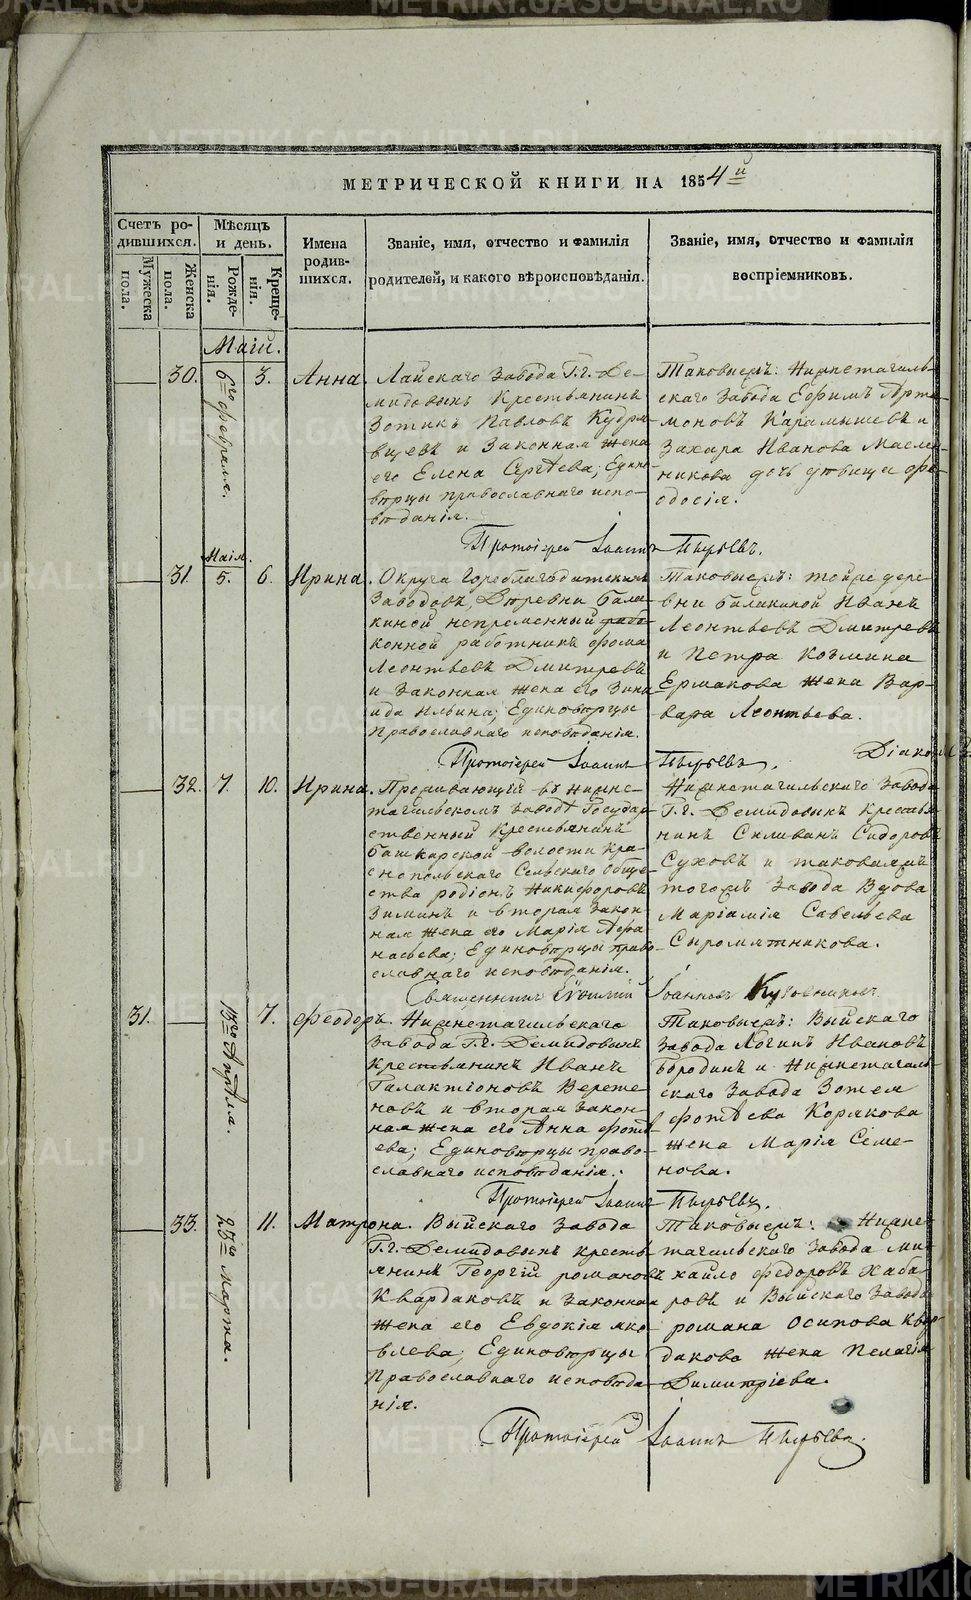 МЕТРИЧЕСКОЙ КНИГИ НА 1854й
Счетъ ро-
дившихся.
Мужеска
пола.
Женска
пола.
Мѣсяцъ
и день.
Рожде-
нія.
Креще-
нія.
Имена
родив-
шихся.
Званіе, имя, отчество и фамилія
родителей, и какого вѣроисповѣданія.
Званіе, имя, отчество и фамилія
воспріемниковъ.
Маій.
30.
6го Февраля.
3.
Анна.
Лайскаго Завода Г.г. Де-
мидовыхъ Крестьянинъ
Зотикъ Павловъ Кудря
вцевъ и Законная жена
его Елена Сергѣева; Едино-
вѣрцы православнаго испо-
вѣданія.
Таковыежъ: Нижнетагиль-
скаго Завода Ефимъ Арта-
моновъ Карамышевъ и
Захара Иванова Маслен-
никова дочь дѣвица Фео-
досія.
Протоіерей Іоаннъ Пырьевъ.
31.
Маія.
5.
6.
Ирина.
Округа Гороблагодатскихъ
Заводовъ, Деревни Бала-
киной непременный
конной работникъ Фома
Леонтьевъ Дмитревъ
и Законная жена его Зина
ида Ильина; Единовѣрцы
Православнаго исповѣданія.
Таковыежъ: тойже дере-
вни Балакиной Иванъ
Леонтьевъ Дмитревъ
и Петра Козмина
Ермакова жена Вар-
вара Леонтьева.
Протоіерей Іоаннъ Пырьевъ.
Діаконъ
32.
7.
10.
Ирина.
Проживающій въ Нижне-
тагильскомъ заводѣ Государ-
ственный Крестьянинъ
Башкарской волости Кра-
снопольскаго Сельскаго Обще-
ства Родіонъ Никифоровъ
Зиминъ и вторая Закон-
ная жена его Марія Афа-
насьева; Единовѣрцы право-
славнаго исповѣданія.
Нижнетагильскаго Завода
Г.г. Демидовыхъ Крестья-
нинъ Селиванъ Сидоровъ
Суховъ и таковаяжъ
тогожъ Завода Вдова
Маріамія Савельева
Сыромятникова.
Священникъ Іоанновъ
31.
13го Апрѣля.
7.
Феодоръ.
Нижнетагильскаго
Завода Г.г. Демидовыхъ
Крестьянинъ Иванъ
Галактіоновъ Верете-
новъ и вторая Закон-
ная жена его Анна Фотѣ-
ева; Единовѣрцы право-
славнаго исповѣданія.
Таковыежъ: Выйскаго
Завода Логинъ Ивановъ
Бородинъ и Нижнетагиль-
скаго Завода Зотея
Фотѣева Корякова
жена Марія Семе-
нова.
Протоіерей Іоаннъ Пырьевъ.
33.
25го Марта.
11.
Матрона.
Выйскаго Завода
Г.г. Демидовыхъ Кресть-
янинъ Георгій Романовъ
Квардаковъ и Законная
жена его Евдокія Яко-
влева; Единовѣрцы
Православнаго исповѣда-
нія.
Таковыежъ: Нижне-
тагильскаго Завода Ми-
хайло Федоровъ Хаба-
ровъ и Выйскаго Завода
Романа Осипова Квар-
дакова жена Пелагія
Димитріева.
Протоіерей Іоаннъ Пырьевъ.
METRIKI.GASO-URAL.RU